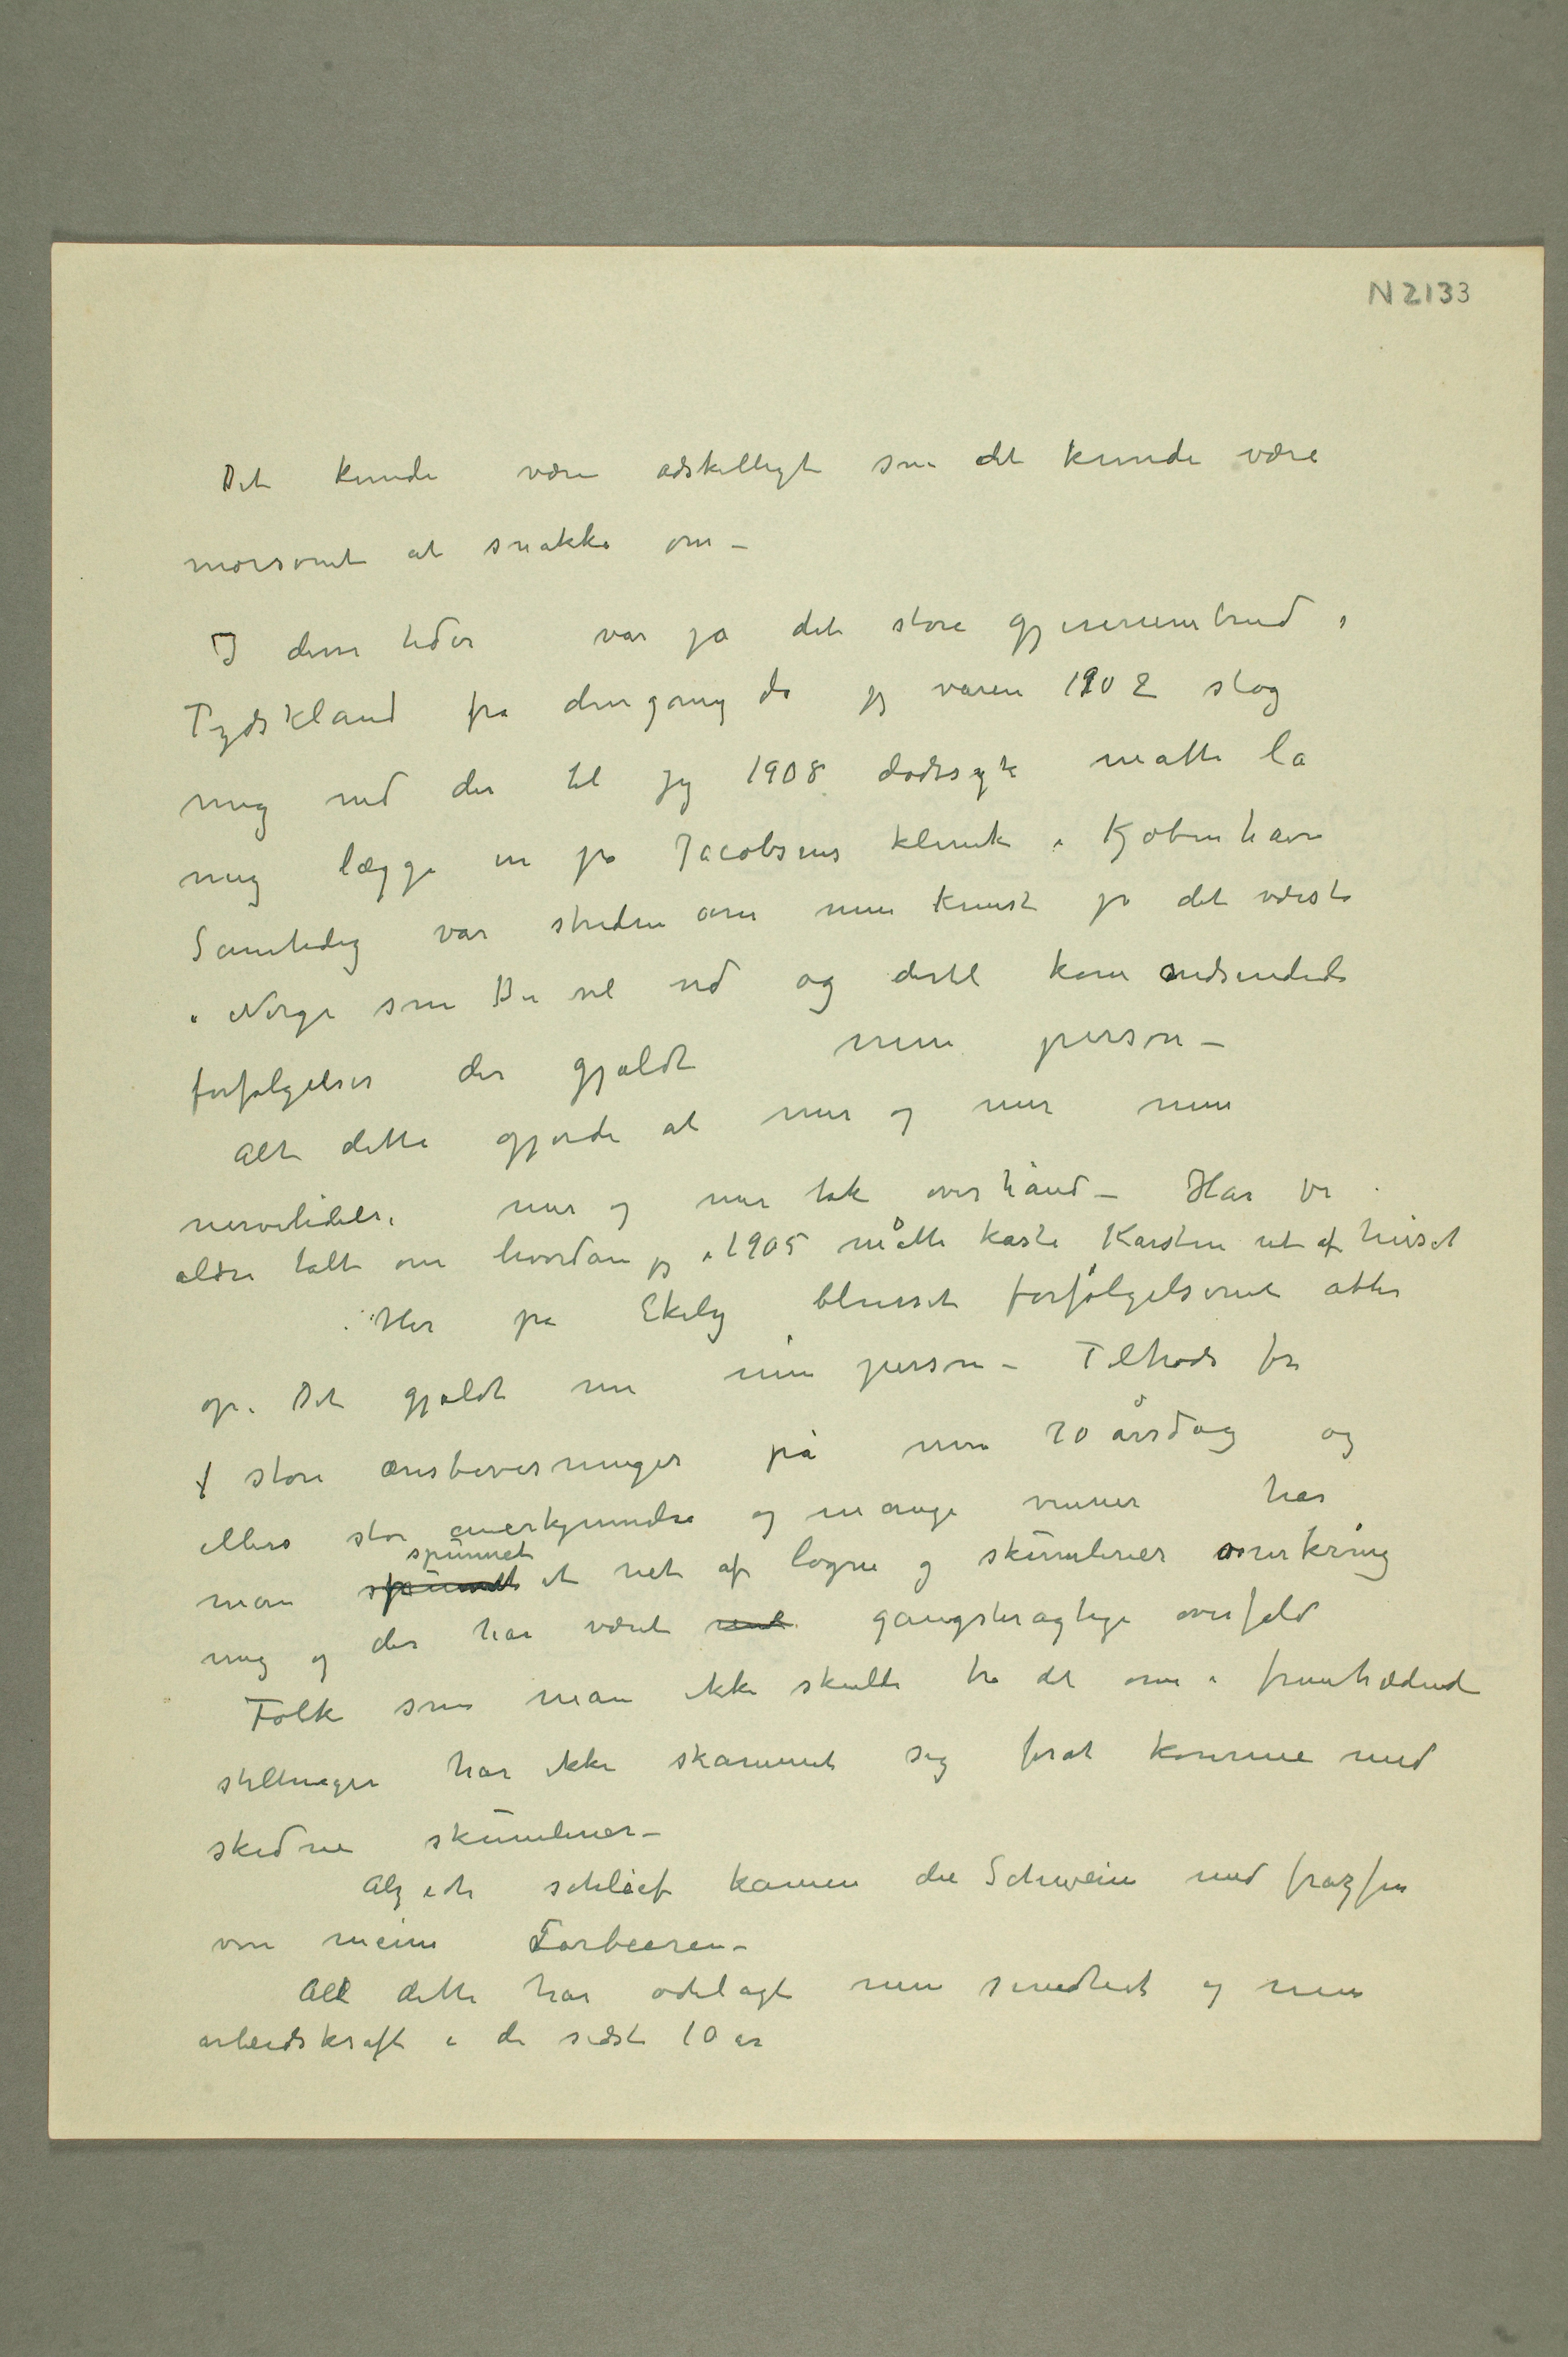 N 2133
Det kunde være adskilligt som det kunde være
morsomt at snakke om –
I dem tider var jo det store gjennembrud i
Tydskland fra dengang da jeg våren 1902 slog
mig ned der til jeg 1908 dødssyk måtte la
mig lægge in på Jacobsens klinik i Kjøbenhavn
Samtidig var striden om min kunst på det værste
i Norge som Du vel ved og dertil kom
forfølgelser der gjaldt min person –
Alt dette gjorde at mer og mer min
nervelidelse mer og mer tok overhånd – Har vi
aldri talt om hvordan jeg i 1905 måtte kaste Karsten ut af huset
Her på Ekely blusset forfølgelserne atter
op. Det gjaldt nu min person – Tiltrods for
store æresbevisninger på min 70 årsdag og
ellers stor anerkjennelse og mange venner har
spunnet
man spunnet et net af løgne og skumlerier omkring
mig og der har været gangsteragtige overfald
Folk som man ikke skulde tro det om i fremtrædend
stillinger har ikke skammet sig forat komme med
skidne skumlerier –
Alz ich schlief kamen die Schweine und frazsen
von meine Lorbeeren –
Alt dette har ødelagt min sundhet og min
arbeidskraft i de sidste 10 år